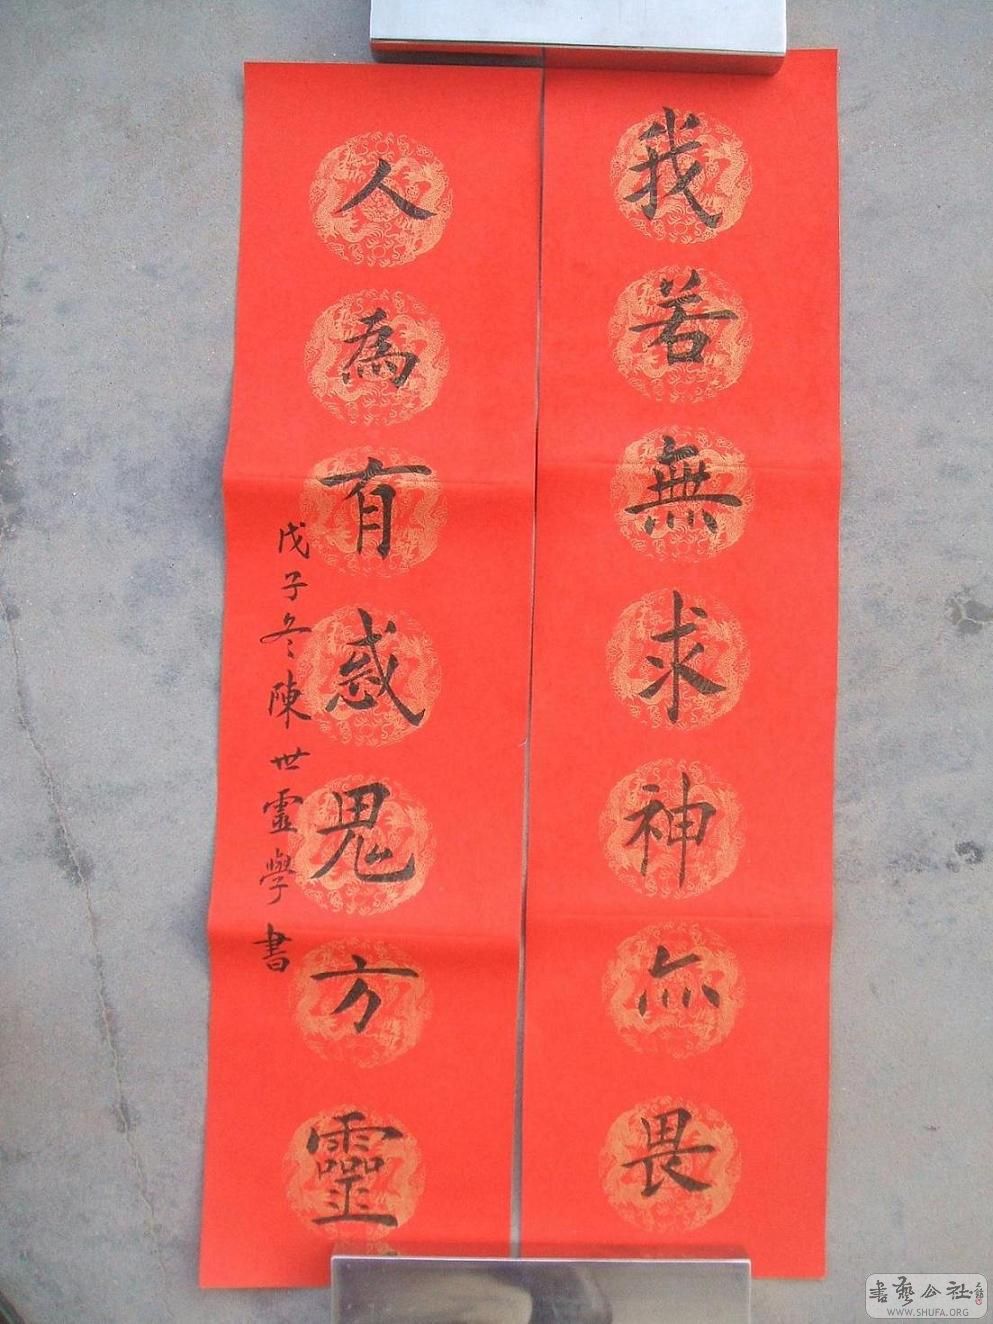 我若無求神亦畏
人為有惑鬼方靈
戊子冬陳世靈學書
書藝公社
WWW.SHUFA.ORG